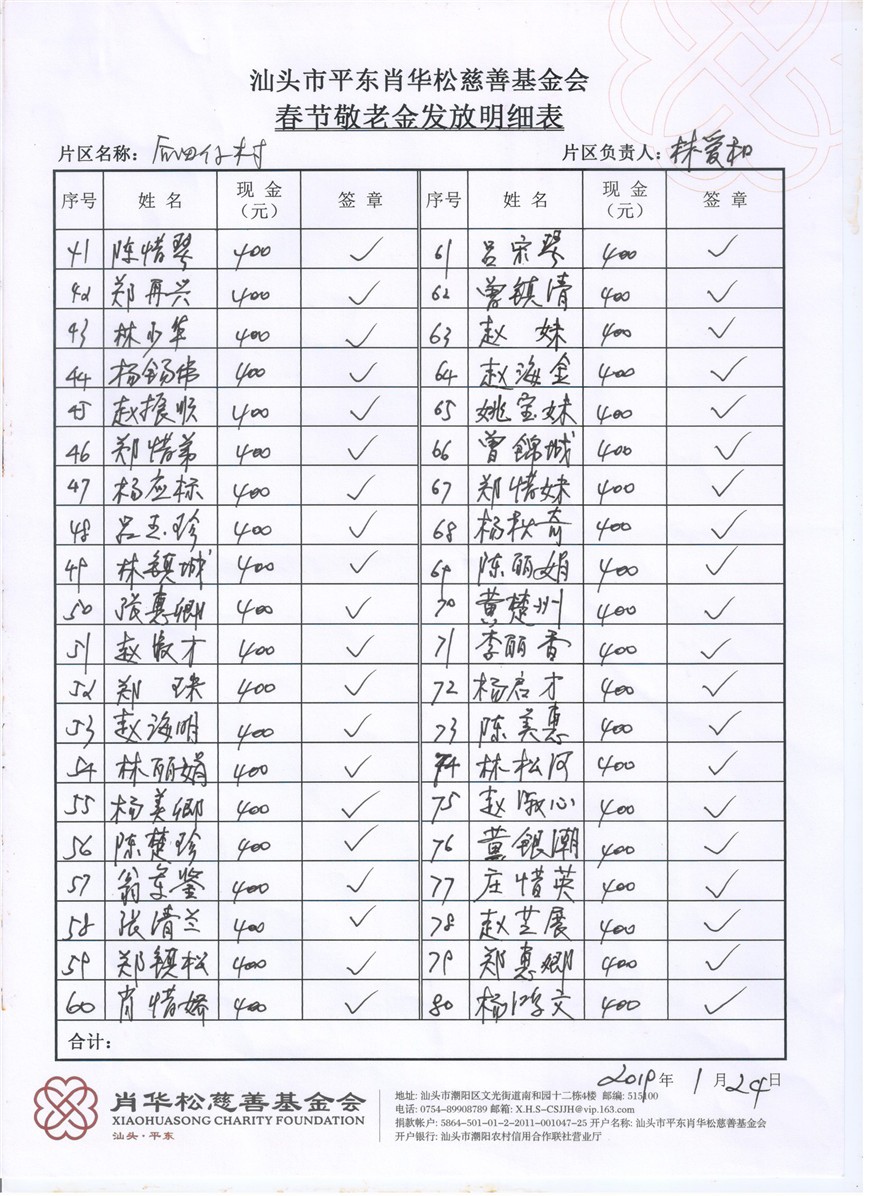 汕头市平东肖华松慈善基金会
春节敬老金发放明细表
片区名称：后田仔村 片区负责人：林爱和
序号 姓名 现金（元） 签章 序号 姓名 现金（元） 签章
41 陈惜琴 400 ✓ 61 吕宋琴 400 ✓
42 郑再兴 400 ✓ 62 曾镇清 400 ✓
43 林少华 400 ✓ 63 赵妹 400 ✓
44 杨锡伟 400 ✓ 64 赵海金 400 ✓
45 赵振顺 400 ✓ 65 姚宝妹 400 ✓
46 郑惜弟 400 ✓ 66 曾锦城 400 ✓
47 杨应标 400 ✓ 67 郑惜妹 400 ✓
48 吕玉珍 400 ✓ 68 杨秋奇 400 ✓
49 林镇城 400 ✓ 69 陈丽娟 400 ✓
50 张惠卿 400 ✓ 70 黄楚州 400 ✓
51 赵俊才 400 ✓ 71 李丽香 400 ✓
52 郑珠 400 ✓ 72 杨启才 400 ✓
53 赵海明 400 ✓ 73 陈美惠 400 ✓
54 林丽娟 400 ✓ 74 林松河 400 ✓
55 杨美卿 400 ✓ 75 赵淑心 400 ✓
56 陈楚珍 400 ✓ 76 黄银潮 400 ✓
57 翁鉴 400 ✓ 77 庄惜英 400 ✓
58 张清兰 400 ✓ 78 赵芝展 400 ✓
59 郑镇松 400 ✓ 79 郑惠卿 400 ✓
60 肖惜娇 400 ✓ 80 杨鸿文 400 ✓
合计：
2019年1月24日
肖华松慈善基金会
XIAOHUASONG CHARITY FOUNDATION
汕头·平东
地址: 汕头市潮阳区文光街道南和园十二栋4楼 邮编: 515100
电话: 0754-89908789 邮箱: X.H.S-CSJJH@vip.163.com
捐款帐户: 5864-501-01-2-2011-001047-25 开户名称: 汕头市平东肖华松慈善基金会
开户银行: 汕头市潮阳农村信用合作联社营业厅